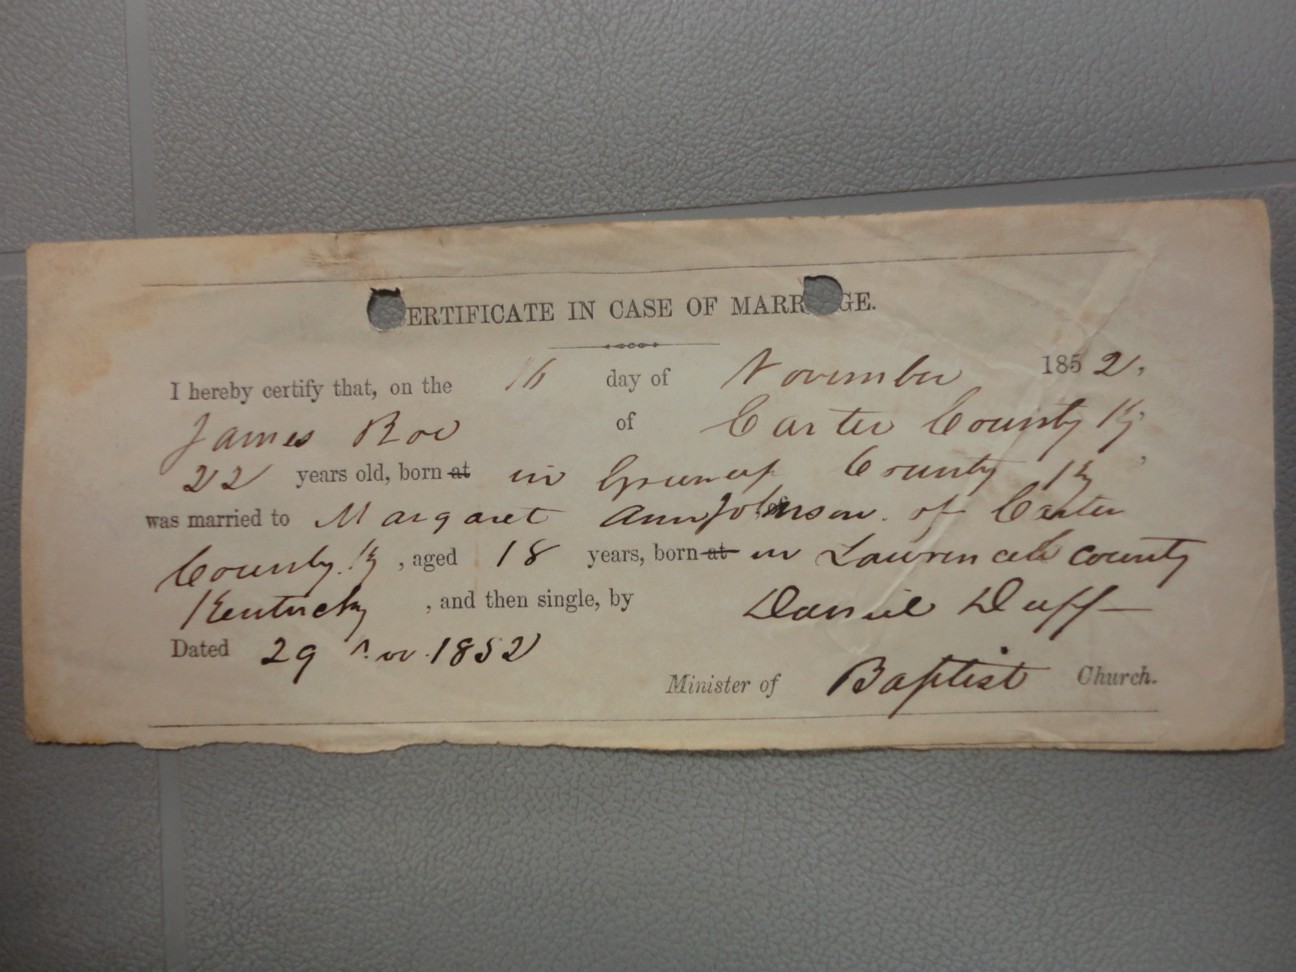 ERTIFICATE IN CASE OF MARR GE.
I hereby certify that, on the 16 day of November 1852,
James Roe of Carter County Ky
22 years old, born at in Greenup County Ky
was married to Margaret Ann Johnson of Carter
County Ky, aged 18 years, born at in Lawrence county
Kentucky, and then single, by Daniel Duff
Dated 29 Nov. 1852
Minister of Baptist Church.